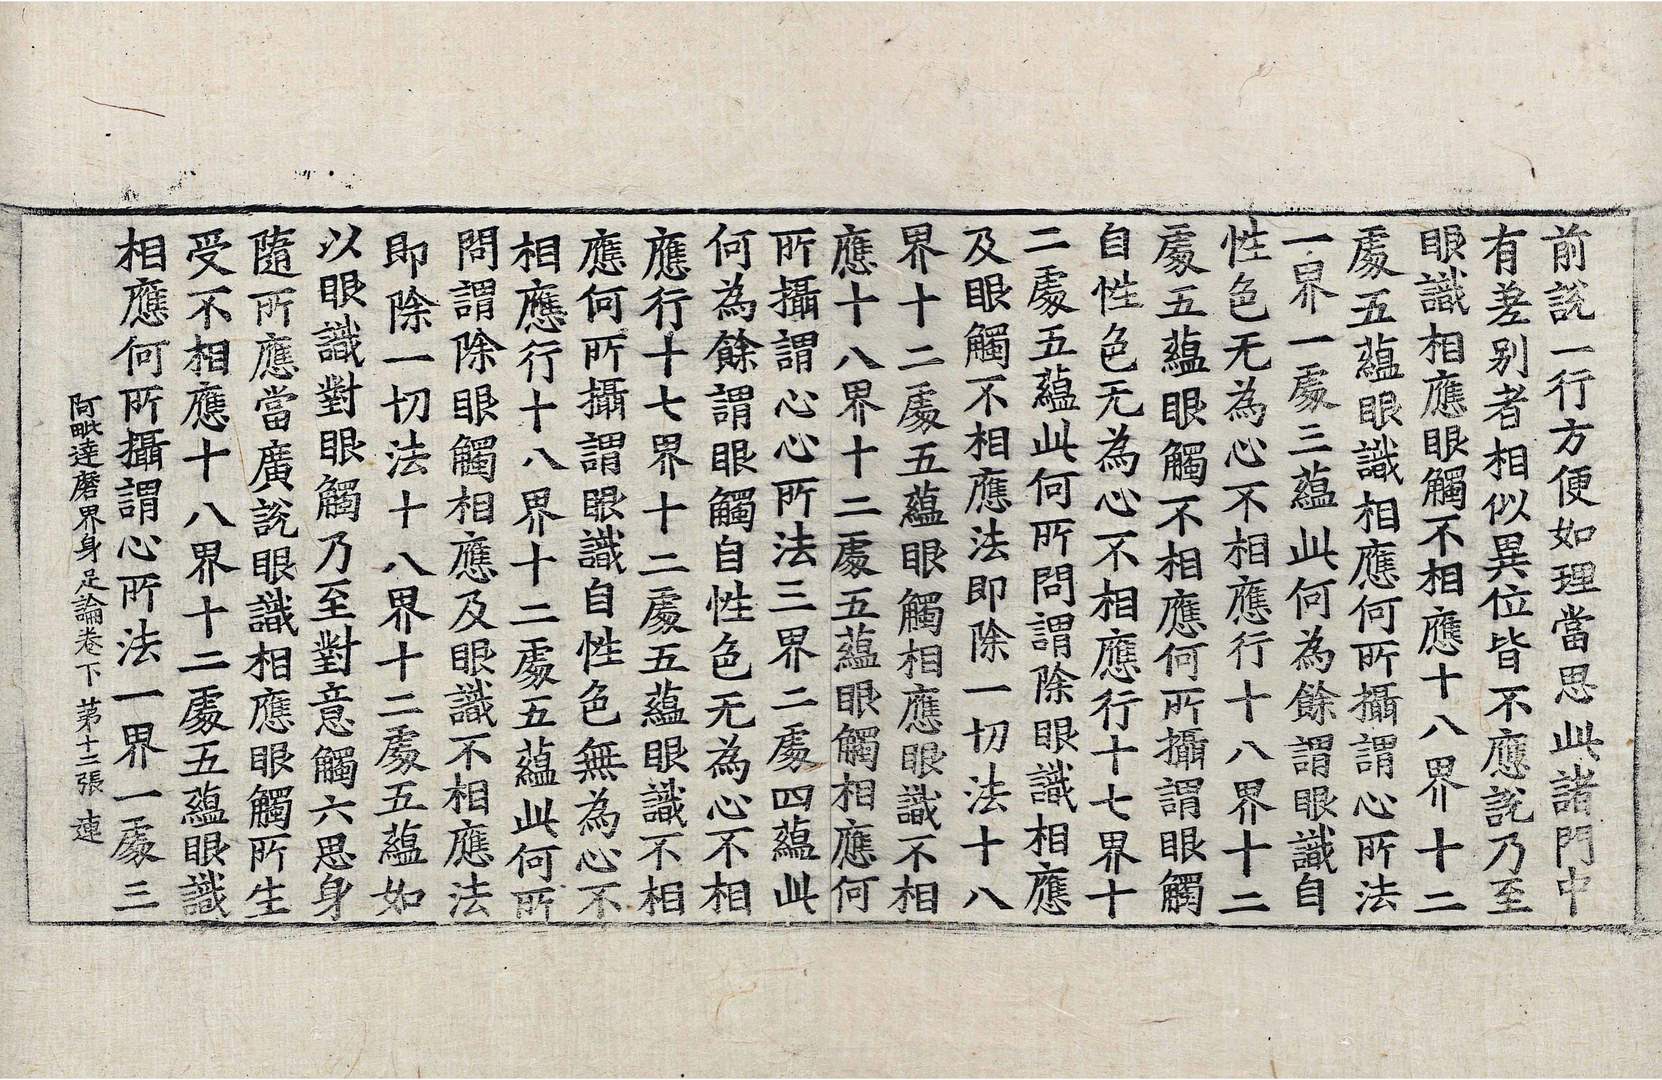 前說一行方便如理當思此諸門中
有差別者相似異位皆不應說乃至
眼識相應眼觸不相應十八界十二
處五蘊眼識相應何所攝謂心所法
一界一處三蘊此何為餘謂眼識自
性色无為心不相應行十八界十二
處五蘊眼觸不相應何所攝謂眼觸
自性色无為心不相應行十七界十
二處五蘊此何所問謂除眼識相應
及眼觸不相應法即除一切法十八
界十二處五蘊眼觸相應眼識不相
應十八界十二處五蘊眼觸相應何
所攝謂心心所法三界二處四蘊此
何為餘謂眼觸自性色无為心不相
應行十七界十二處五蘊眼識不相
應何所攝謂眼識自性色無為心不
相應行十八界十二處五蘊此何所
問謂除眼觸相應及眼識不相應法
即除一切法十八界十二處五蘊如
以眼識對眼觸乃至對意觸六思身
隨所應當廣說眼識相應眼觸所生
受不相應十八界十二處五蘊眼識
相應何所攝謂心所法一界一處三
阿毗達磨界身足論卷下 苐十三張 連